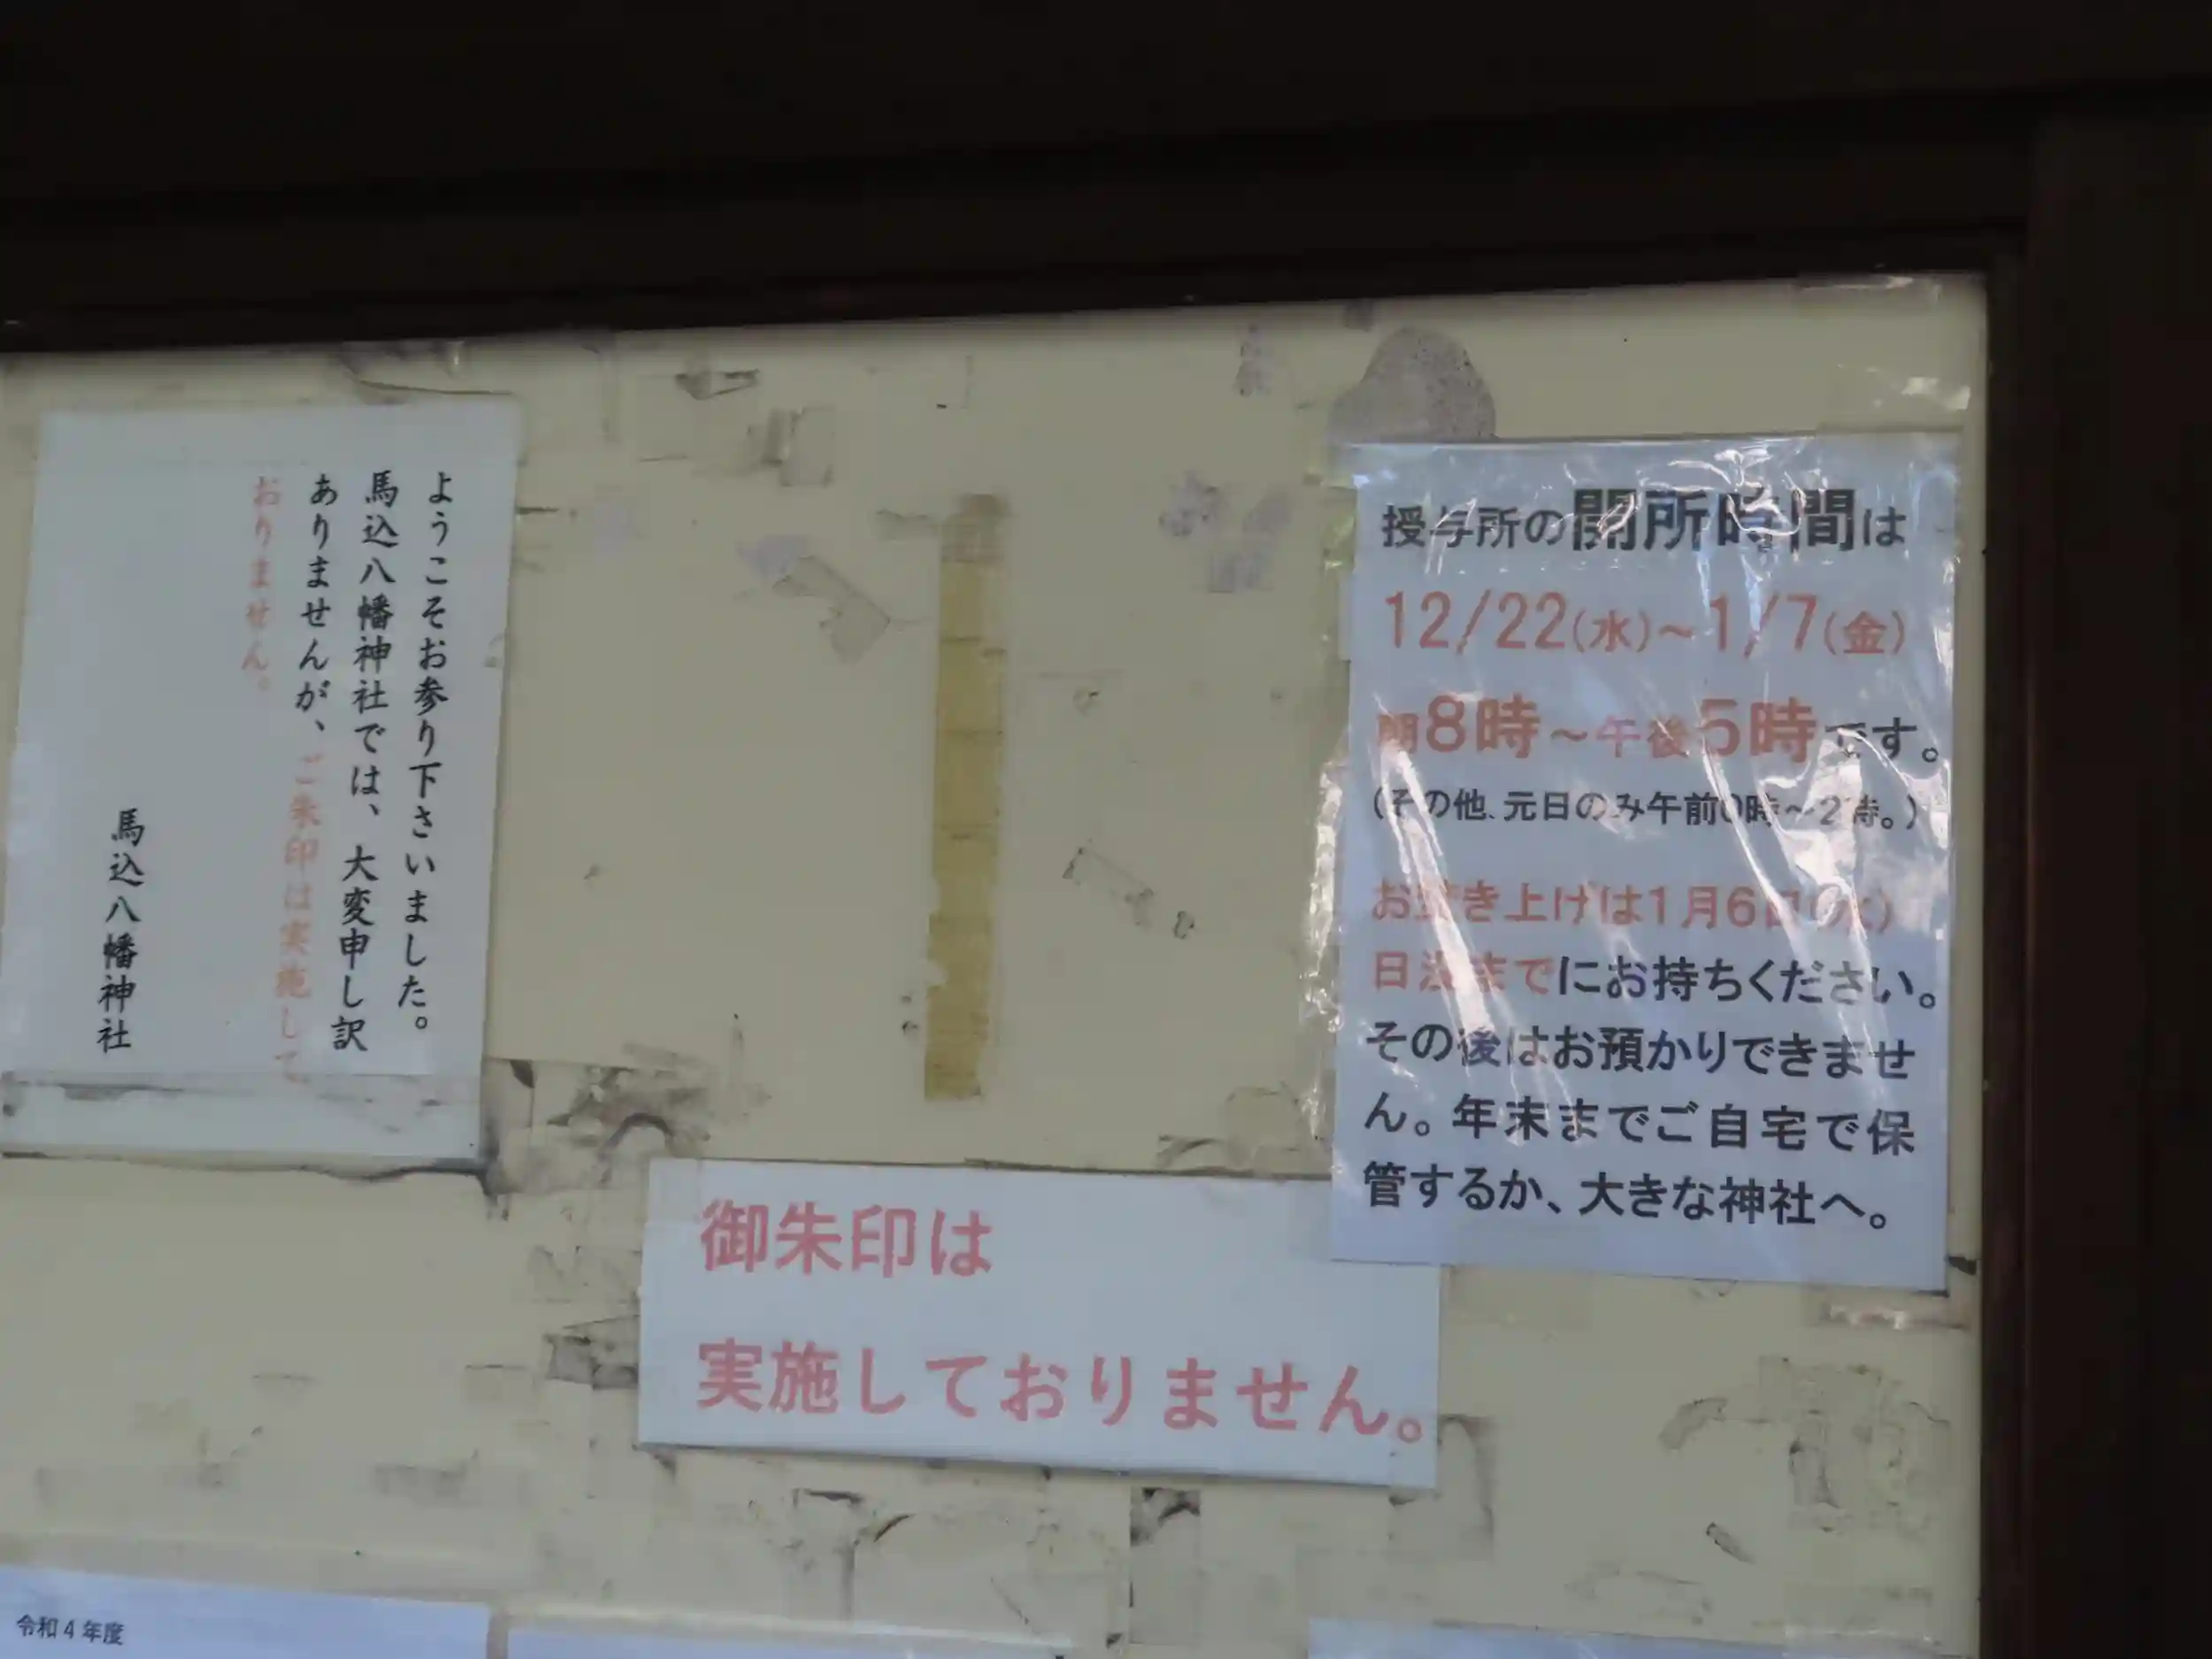 ようこそお参り下さいました。
馬込八幡神社では、大変申し訳
ありませんが、ご朱印は実施して
おりません。
馬込八幡神社
授与所の開所時間は
12/22(水)~1/7(金)
朝8時~午後5時です。
(その他、元日のみ午前0時~2時。)
お焚き上げは1月6日(水)
日没までにお持ちください。
その後はお預かりできませ
ん。年末までご自宅で保
管するか、大きな神社へ。
御朱印は
実施しておりません。
令和4年度